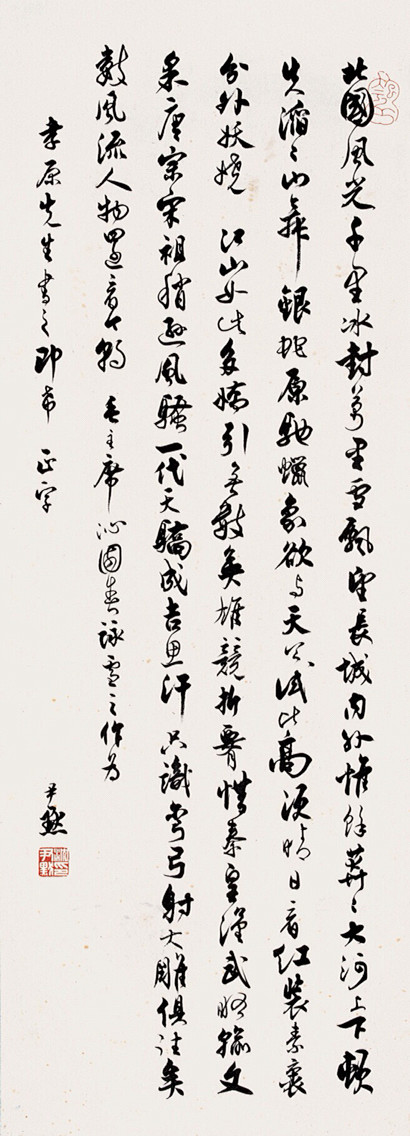 北國風光千里冰封萬里雪飄望長城內外惟餘莽〻大河上下頓
失滔〻山舞銀蛇原馳蠟象欲與天公試比高須晴日看紅裝素裹
分外妖嬈 江山如此多嬌引無數英雄競折腰惜秦皇漢武略輸文
采唐宗宋祖稍遜風騷一代天驕成吉思汗只識彎弓射大雕俱往矣
數風流人物還看今朝 毛主席沁園春詠雪之作為
原先生書之即希 正字
尹默